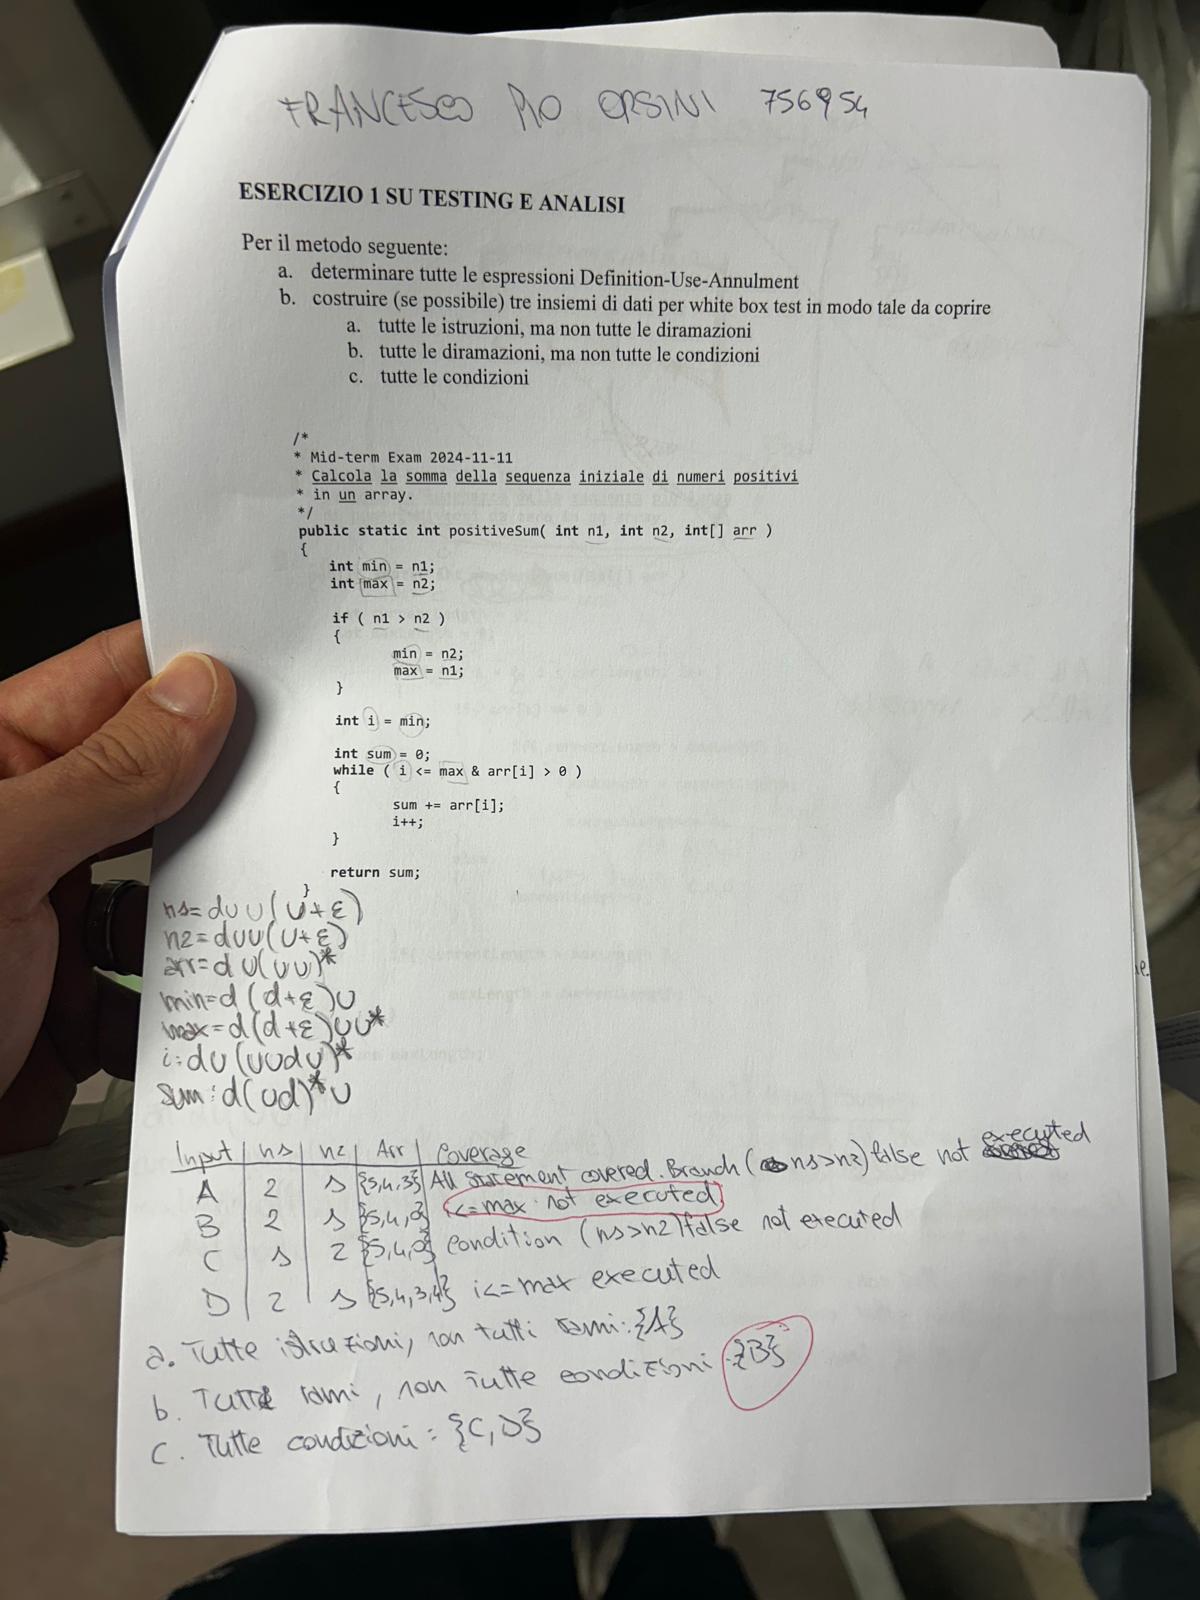 FRANCESCO PIO ORSINI 756954
ESERCIZIO 1 SU TESTING E ANALISI
Per il metodo seguente:
a. determinare tutte le espressioni Definition-Use-Annulment
b. costruire (se possibile) tre insiemi di dati per white box test in modo tale da coprire
a. tutte le istruzioni, ma non tutte le diramazioni
b. tutte le diramazioni, ma non tutte le condizioni
c. tutte le condizioni
/*
* Mid-term Exam 2024-11-11
* Calcola la somma della sequenza iniziale di numeri positivi
* in un array.
*/
public static int positiveSum( int n1, int n2, int[] arr )
{
int min = n1;
int max = n2;
if ( n1 > n2 )
{
min = n2;
max = n1;
}
int i = min;
int sum = 0;
while ( i <= max & arr[i] > 0 )
{
sum += arr[i];
i++;
}
return sum;
}
n1= duu(u+ε)
n2= duu(u+ε)
arr= du(uu)*
min= d(d+ε)u
max= d(d+ε)uu*
i: du(uudu)*
sum: d(ud)*u
Input n1 n2 Arr Coverage
A 2 1 {5,4,3} All statement covered. Branch (n1>n2) false not executed
B 2 1 {5,4,0} i<=max not executed
C 1 2 {5,4,0} condition (n1>n2) false not executed
D 2 1 {5,4,3,4} i<=max executed
a. Tutte istruzioni, non tutti rami: {A}
b. Tutti rami, non tutte condizioni: {B}
c. Tutte condizioni: {C,D}